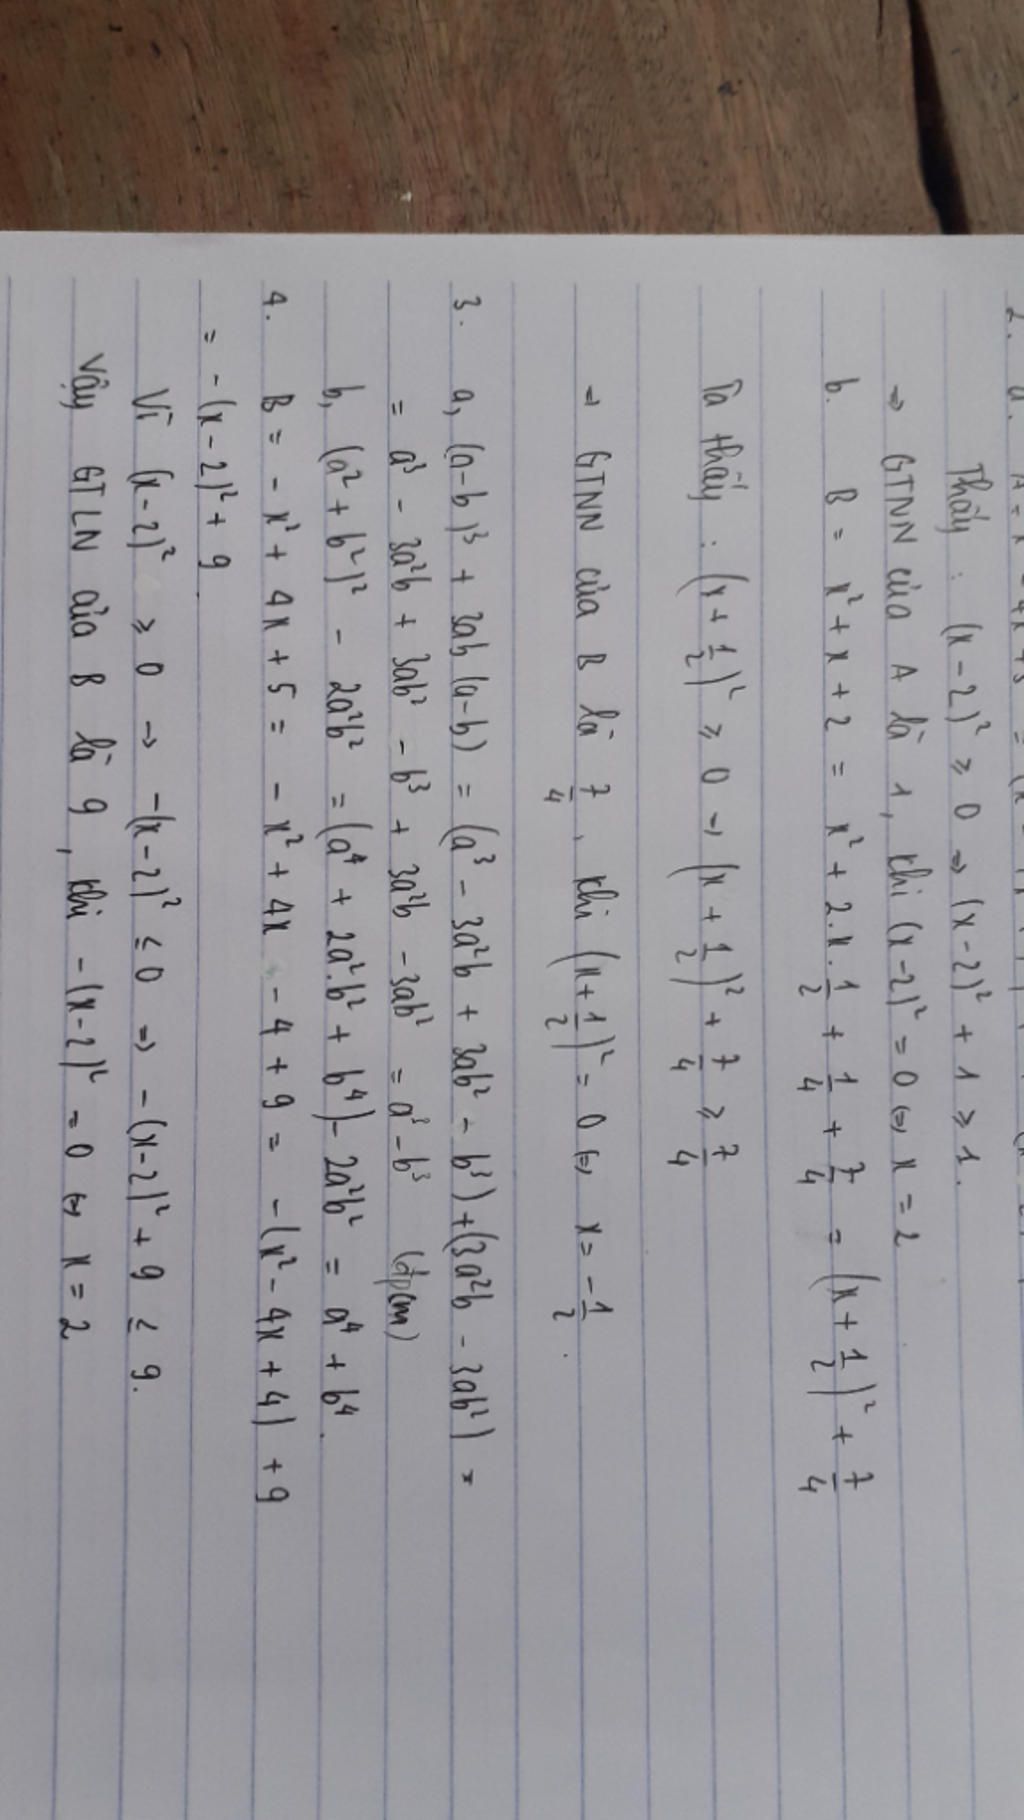 2. a. A = x² - 4x + 5 = (x
Thấy : (x - 2)² ≥ 0 => (x - 2)² + 1 ≥ 1.
=> GTNN của A là 1, khi (x - 2)² = 0 <=> x = 2
b. B = x² + x + 2 = x² + 2.x.1/2 + 1/4 + 7/4 = (x + 1/2)² + 7/4
Ta thấy : (x + 1/2)² ≥ 0 -> (x + 1/2)² + 7/4 ≥ 7/4
=> GTNN của B là 7/4, khi (x + 1/2)² = 0 <=> x = -1/2.
3. a, (a - b)³ + 3ab (a - b) = (a³ - 3a²b + 3ab² - b³) + (3a²b - 3ab²) =
= a³ - 3a²b + 3ab² - b³ + 3a²b - 3ab² = a³ - b³ (đpcm)
b, (a² + b²)² - 2a²b² = (a⁴ + 2a².b² + b⁴) - 2a²b² = a⁴ + b⁴.
4. B = - x² + 4x + 5 = - x² + 4x - 4 + 9 = - (x² - 4x + 4) + 9
= - (x - 2)² + 9
Vì (x - 2)² ≥ 0 -> - (x - 2)² ≤ 0 => - (x - 2)² + 9 ≤ 9.
Vậy GTLN của B là 9, khi - (x - 2)² = 0 <=> x = 2